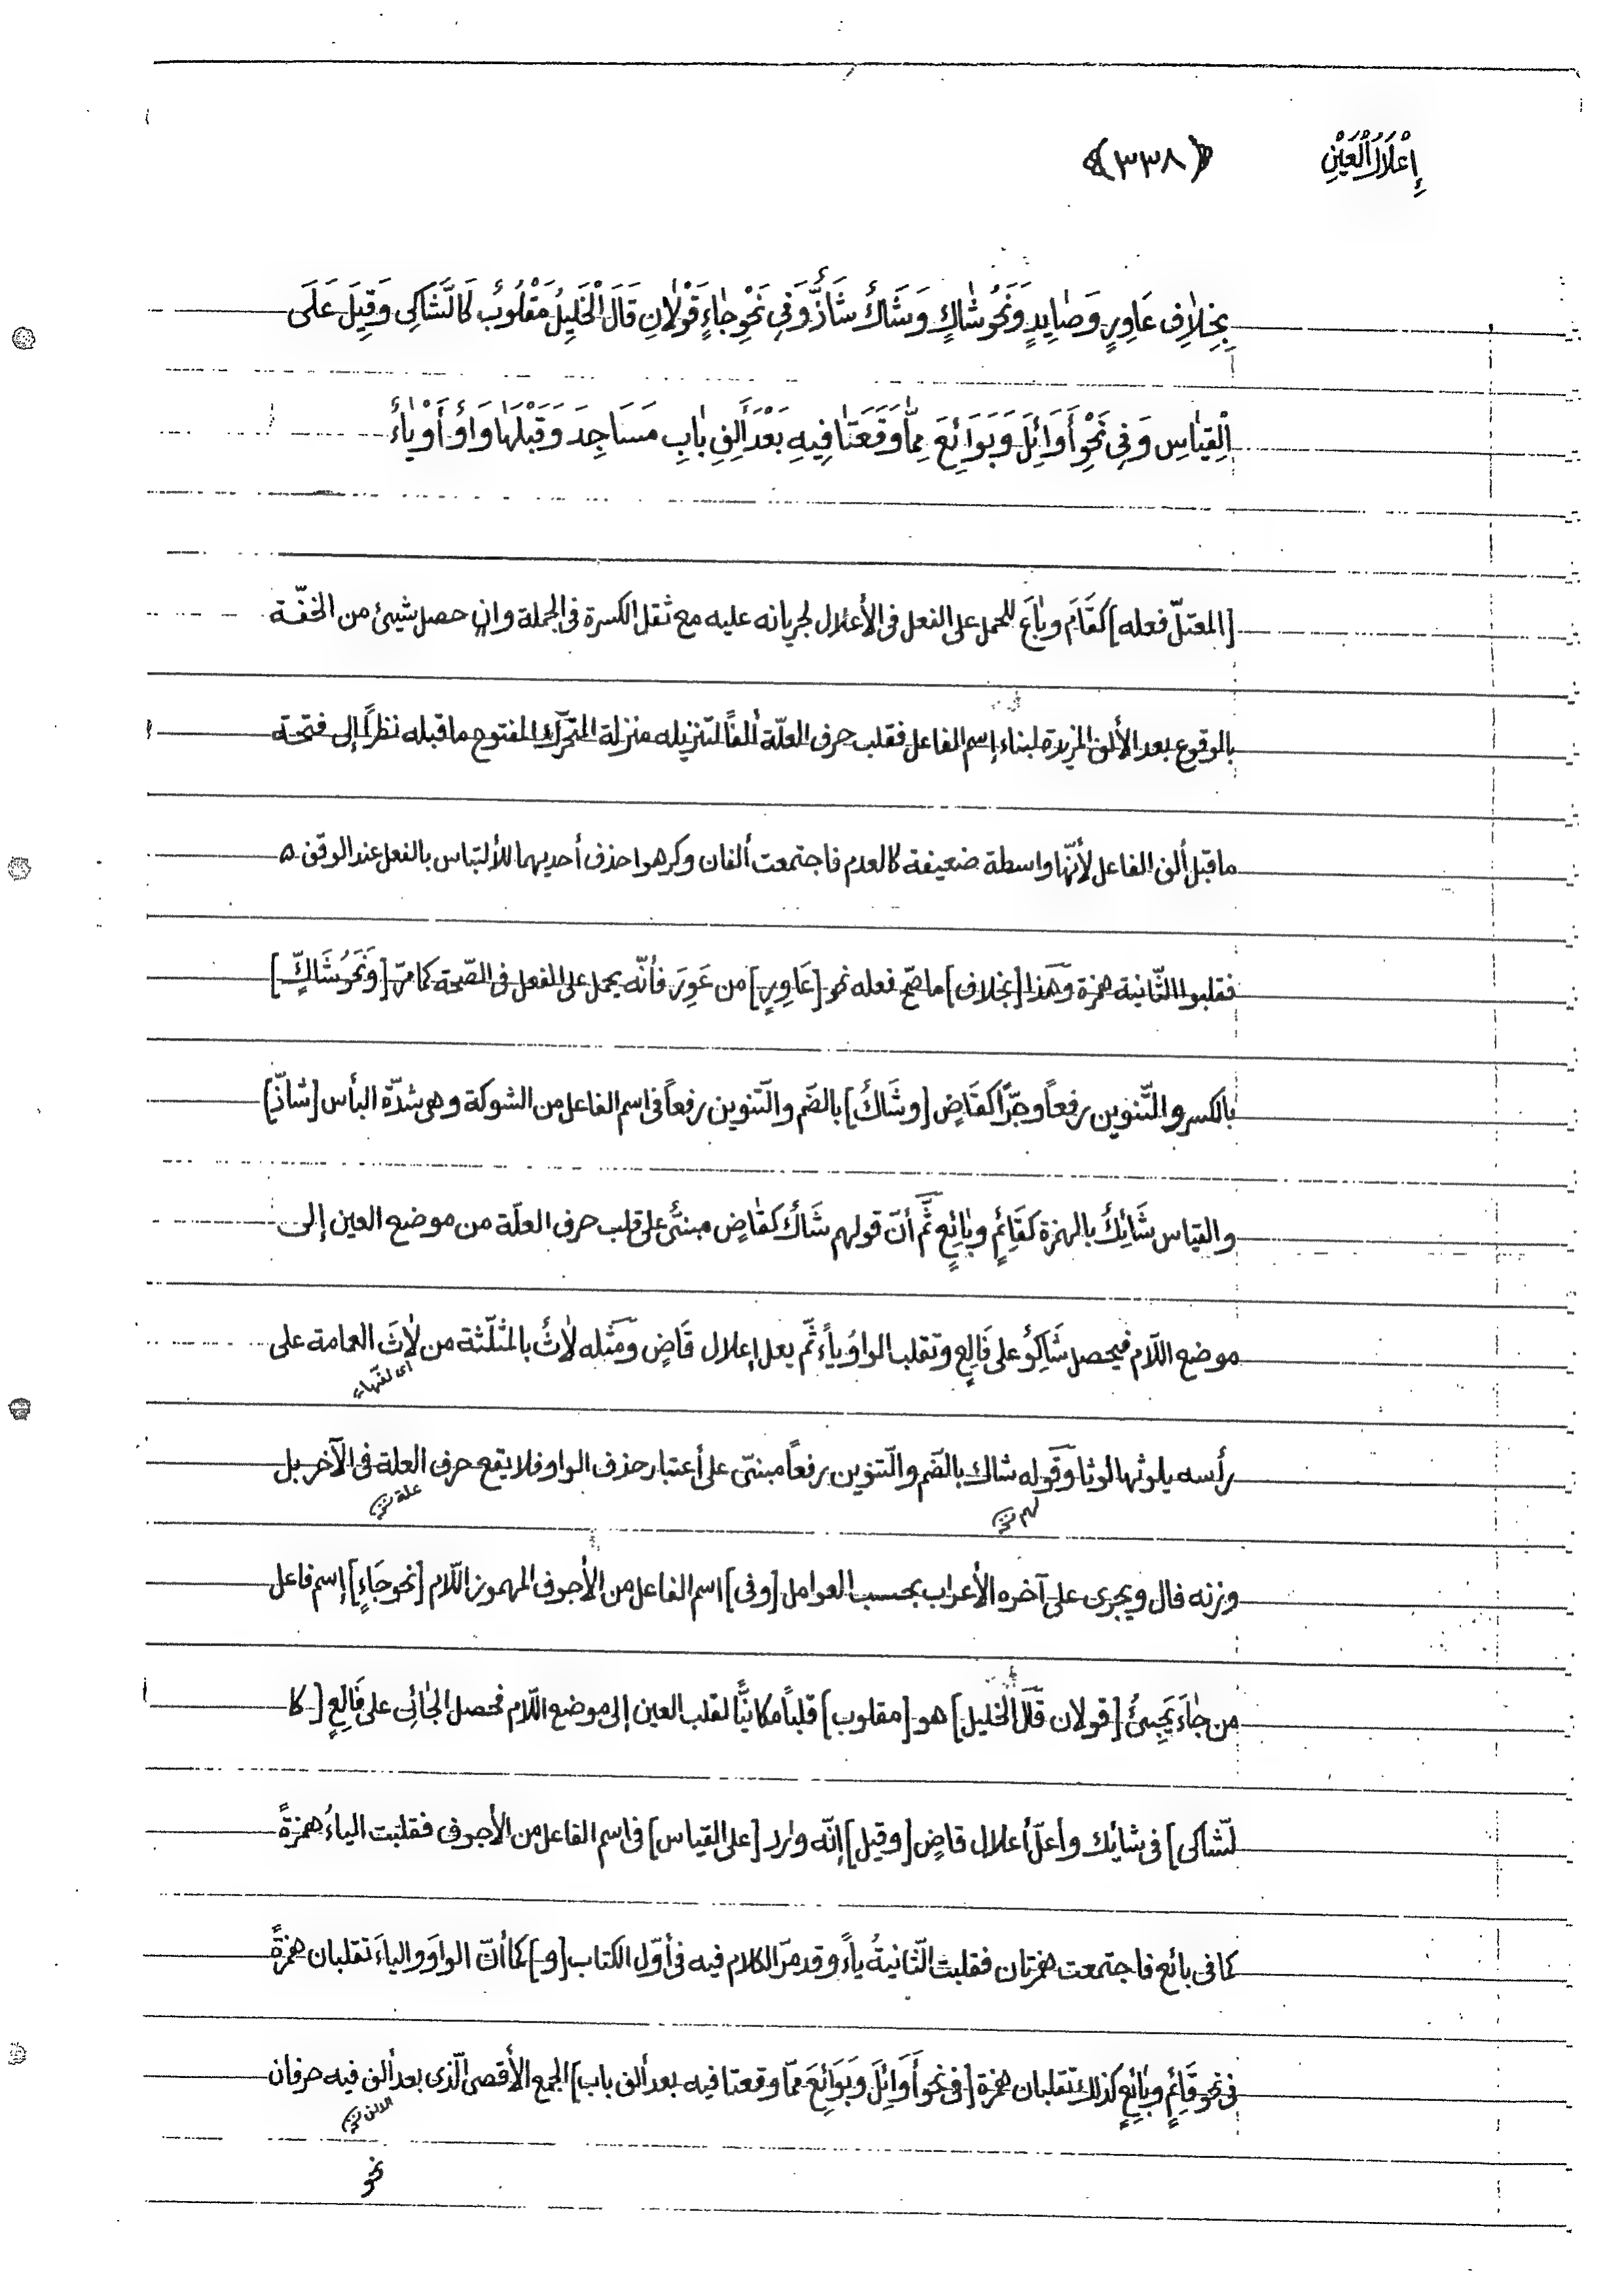 إِعْلَالُ الْعَيْنِ
﴿٣٣٨﴾
بِخِلاٰفِ عَاوِرٍ وَصٰايِدٍ وَنَحْوُ شٰاكٍ وَشَاكٌ شَاذٌّ وَفِي نَحْوِ جٰاءٍ قَوْلاٰنِ قَالَ الْخَلِيلُ مَقْلُوبٌ كَالشَّاكِى وَقِيلَ عَلَى
الْقِيٰاسِ وَفِى نَحْوِ أَوَائِلَ وَبَوَائِعَ مِمّٰا وَقَعَتٰا فِيهِ بَعْدَ أَلِفِ بٰابِ مَسَاجِدَ وَقَبْلَهٰا وَاوٌ أَوْ يٰاءٌ
[المعتلّ فعله] كقَامَ وبٰاعَ للحمل على الفعل فى الأعلال لجريانه عليه مع ثقل الكسرة فى الجملة وان حصل شيئ من الخفّة
بالوقوع بعد الألف المزيدة لبناء إسم الفاعل فقلب حرف العلّة ألفاً لتنزيله منزلة المتحرّك المفتوح ما قبله نظراً إلى فتحة
ما قبل ألف الفاعل لأنّها واسطة ضعيفة كالعدم فاجتمعت ألفان وكرهوا حذف أحديهما للألتباس بالفعل عند الوقف ه
فقلبوا الثّانية همزة وهذا [بخلاف] ما صحّ فعله نحو [عَاوِرٍ] من عَوِرَ فأنّه يحمل على الفعل فى الصّحة كما مرّ [وَنَحْوُ شَاكٍ]
بالكسر والتّنوين رفعاً وجرّاً كقَاضٍ [وشَاكٌ] بالضّم والتّنوين رفعاً فى اسم الفاعل من الشوكة وهى شدّة البأس [شاذّ]
والقياس شَائِكٌ بالهمزة كقَائِمٍ وبٰائِعٍ ثمّ أنّ قولهم شَاكٍ كقٰاضٍ مبنىٌّ على قلب حرف العلّة من موضع العين إلى
موضع اللّام فيحصل شَاكِوٌ على فَالِعٍ وتقلب الواوُ ياءً ثمّ يعل إعلال قَاضٍ ومثله لٰاثٌ بالمثلّثة من لٰاثَ العمامة على
اى لفّها
رأسه يلوثها لوثا وقوله شاك بالضّم والتّنوين رفعاً مبنىّ على أعتبار حذف الواو فلا يقع حرف العلة فى الآخر بل
لهم نخ
علة نخ
وزنه فال ويجرى على آخره الأعراب بحسب العوامل [وفى] اسم الفاعل من الأجوف المهموز اللّام [نحو جَاءٍ] إسم فاعل
من جٰاءَ يَجِىئُ [قولان قال الخليل] هو [مقلوب] قلباً مكانيّاً لقلب العين إلى موضع اللّام فحصل الجٰائِى على فَالِعٍ [كا
لشّاكى] فى شايك وأعلّ أعلال قاضٍ [وقيل] إنّه وٰارد [على القياس] فى اسم الفاعل من الأجوف فقلبت الياءُ همزةً
كما فى بائع فاجتمعت همزتان فقلبت الثّانيةُ ياءً وقد مرّ الكلام فيه فى أوّل الكتاب [و] كما أنّ الواوَ والياءَ تقلبان همزةً
فى نحو قَائِمٍ وبٰائِعٍ كذلك تقلبان همزة [فى نحو أَوَائِلَ وبَوَائِعَ ممّا وقعتا فيه بعد ألف باب] الجمع الأقصى الّذى بعد ألف فيه حرفان
الالف نخ
نحو